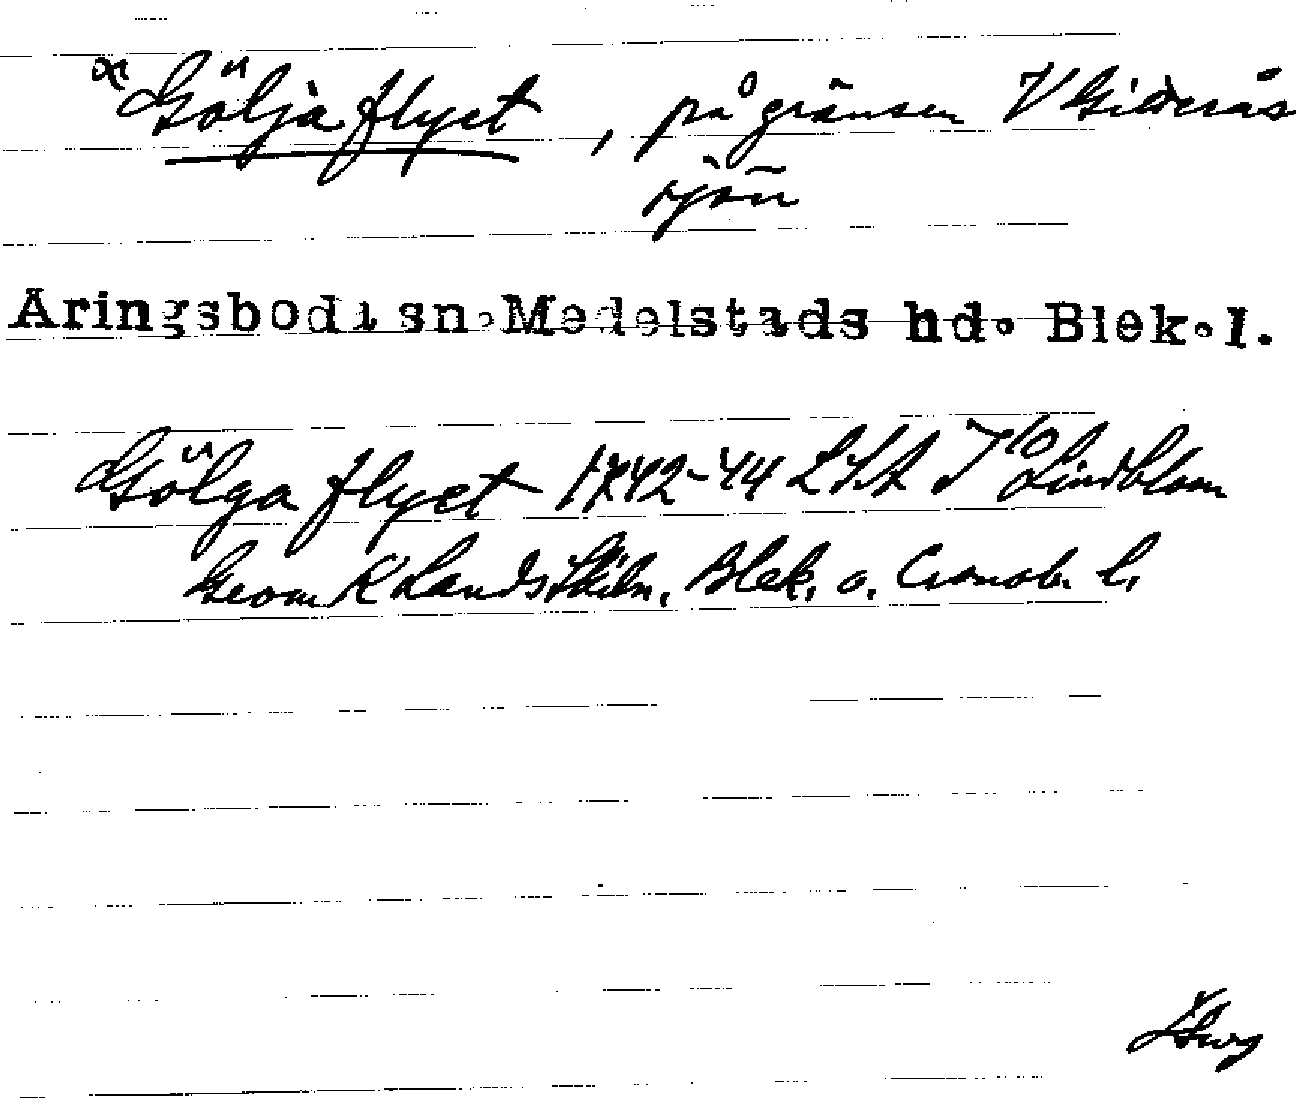 Göljaflyet, på gränsen V Giderås
sjön
Aringsbodi sn. Medelstads hd. Blek. l.
Gölga flyet 1742-44 LSA T 10 Lindblom
Geom K Lands Skiln. Blek. o. Cronob. l.